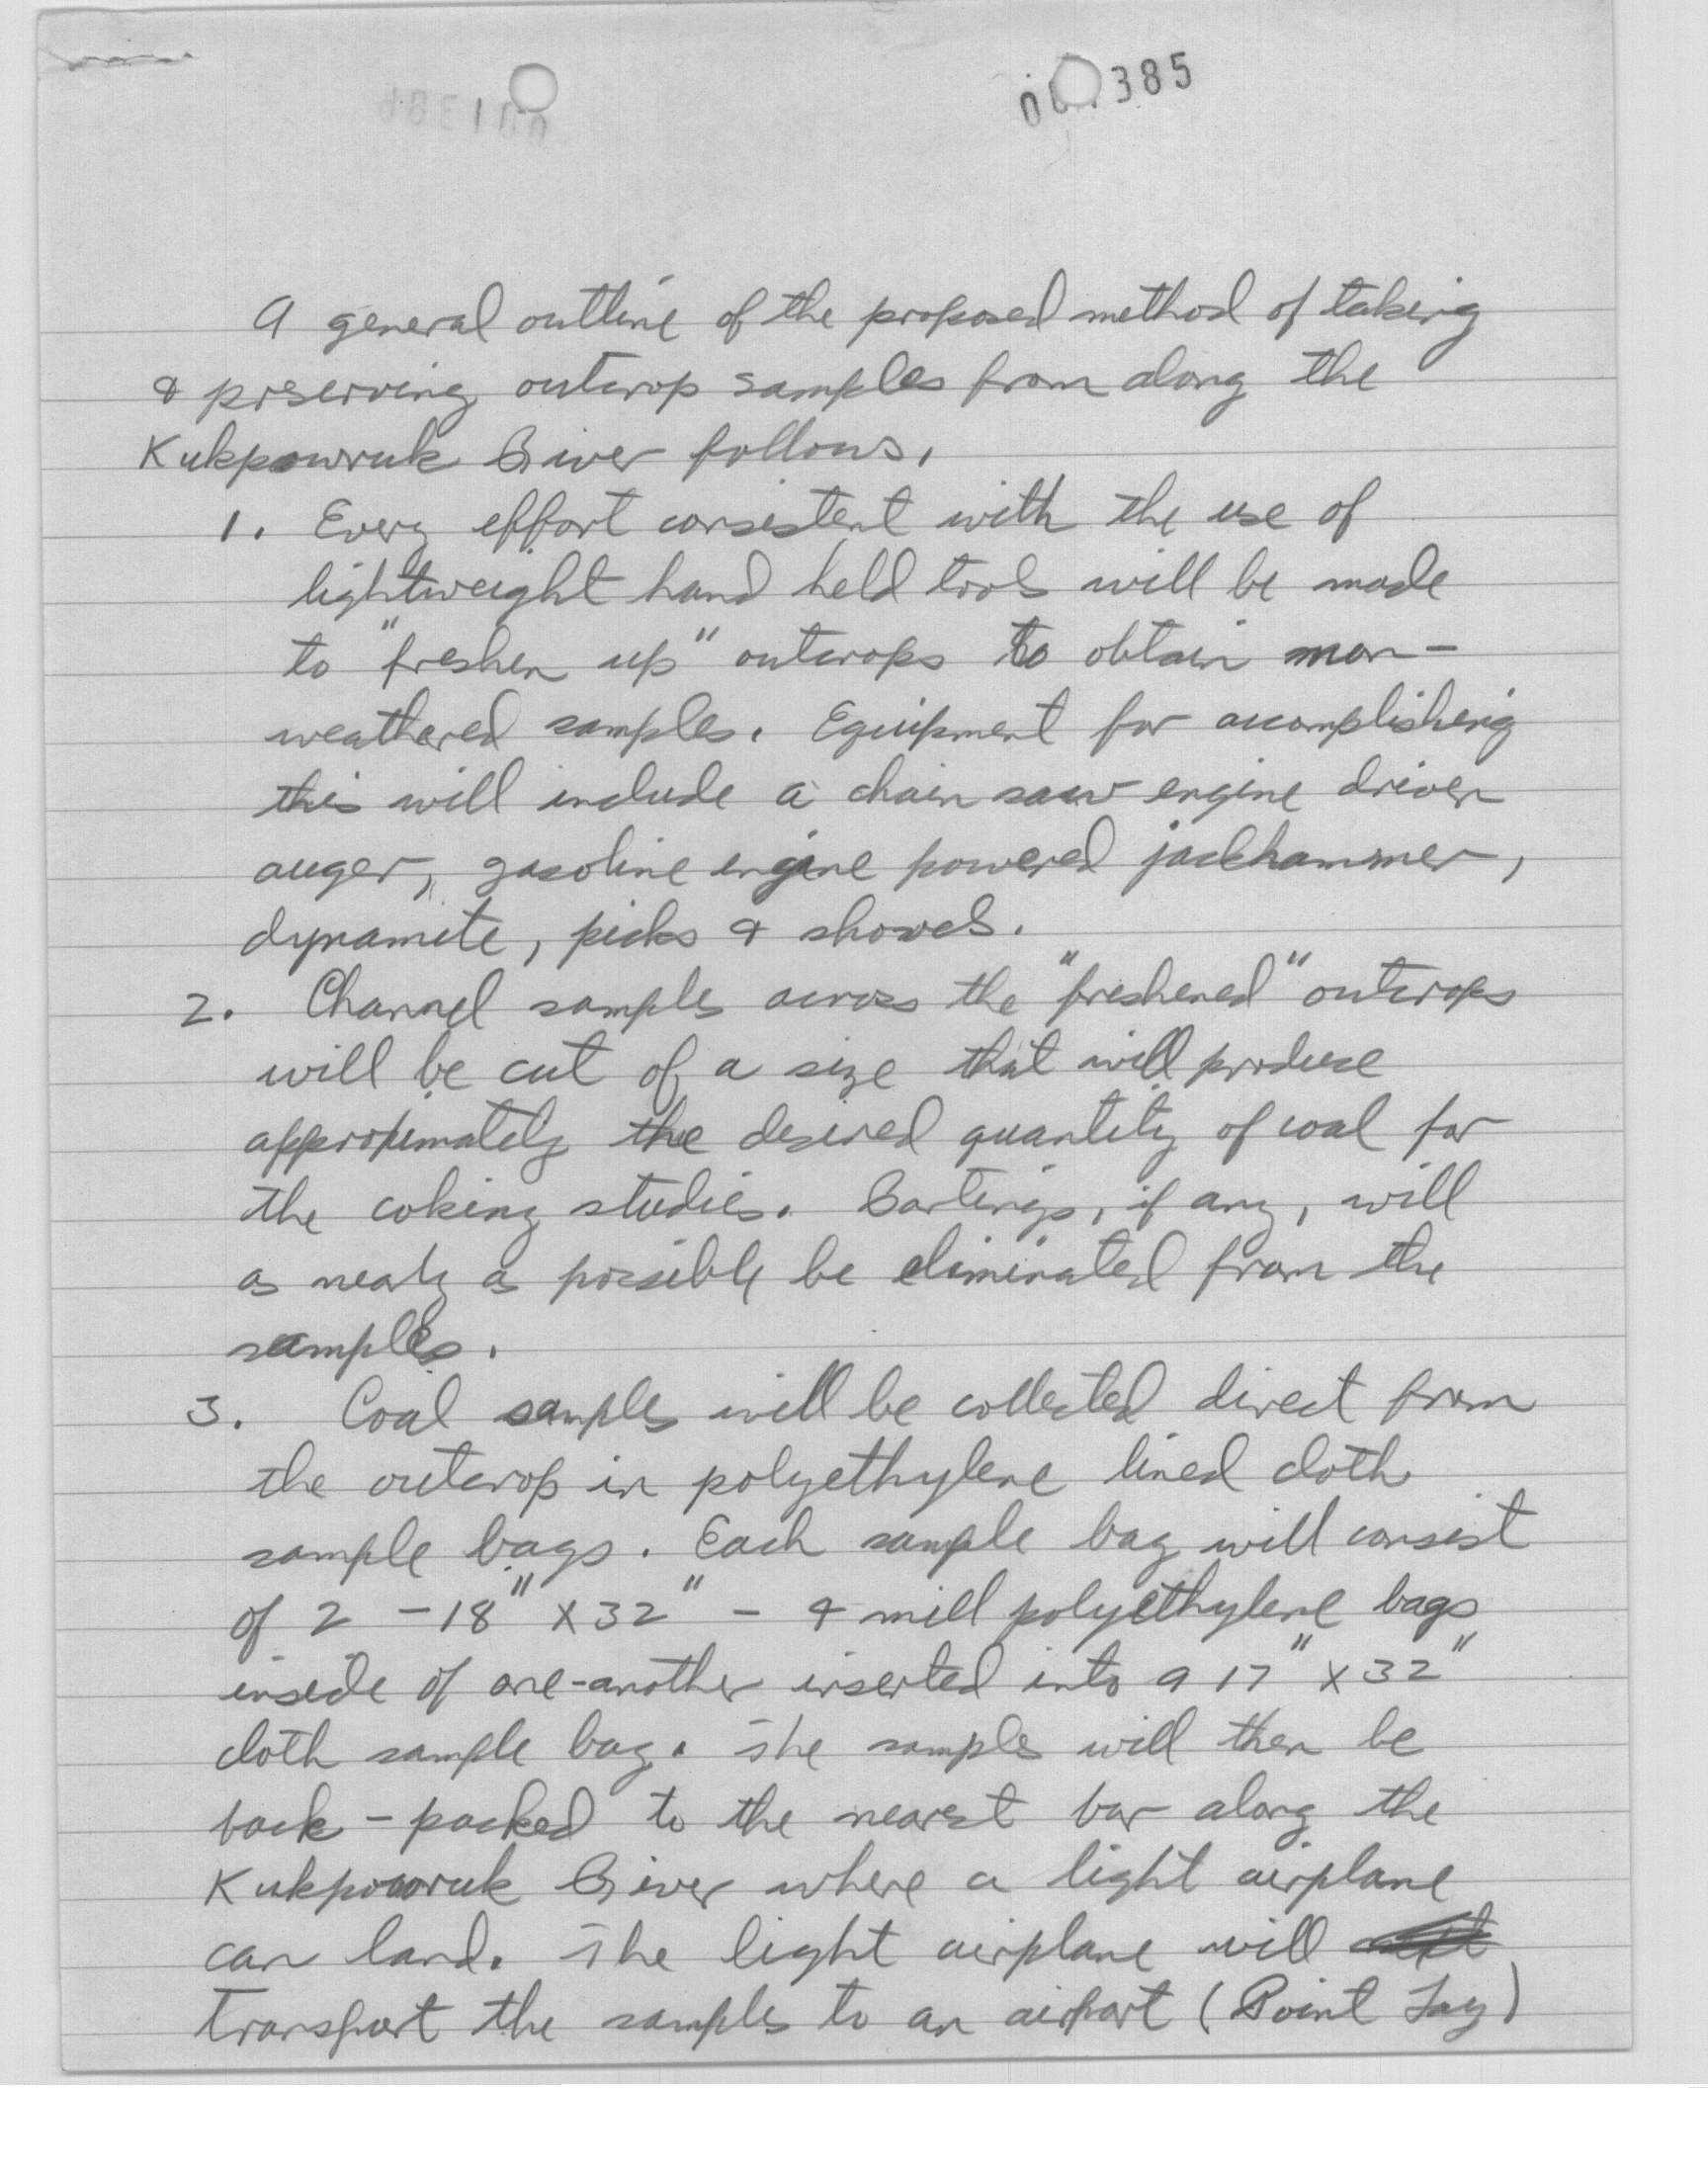 385
A general outline of the proposed method of taking
& preserving outcrop samples from along the
Kukpowruk River follows.
1. Every effort consistent with the use of
lightweight hand held tools will be made
to "freshen up" outcrops to obtain non-
weathered samples. Equipment for accomplishing
this will include a chain saw engine driven
auger, gasoline engine powered jackhammer,
dynamite, picks & shovels.
2. Channel samples across the "freshened" outcrops
will be cut of a size that will produce
approximately the desired quantity of coal for
the coking studies. Partings, if any, will
as nearly as possible be eliminated from the
samples.
3. Coal samples will be collected direct from
the outcrop in polyethylene lined cloth
sample bags. Each sample bag will consist
of 2 - 18" X 32" - 4 mill polyethylene bags
inside of one-another inserted into a 17" X 32"
cloth sample bag. The samples will then be
back-packed to the nearest bar along the
Kukpowruk River where a light airplane
can land. The light airplane will
transport the samples to an airport (Point Lay)